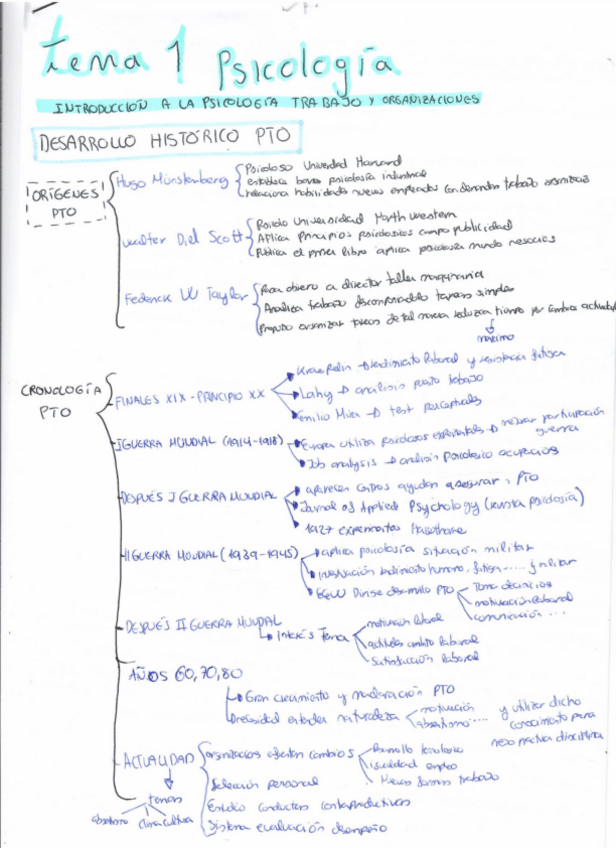 Tema 1 Psicología
INTRODUCCIÓN A LA PSICOLOGÍA TRABAJO Y ORGANIZACIONES
DESARROLLO HISTÓRICO PTO
ORÍGENES PTO
Hugo Münstenberg
Psicologo Univerdad Harvard
establece bases psicología industrial
relaciona habilidades nuevos empleados con demandas trabajo
Walter Dil Scott
Universidad North western
Aplica principios psicologicos campo publicidad
Publica el primer libro aplica psicología mundo negocios
Federick W Taylor
Pasa obrero a director taller maquinaria
Analiza trabajo descomponiendolo tareas simples
Propuso organizar tareas de tal manera reduzca tiempo por cambiar actividad
máximo
CRONOLOGÍA PTO
FINALES XIX - PRINCIPIO XX
Kraepelin → rendimiento laboral y resistencia fatiga
Lahy → análisis puesto trabajo
Emilio Mira → test perceptuales
I GUERRA MUNDIAL (1914-1918)
Europa utiliza psicologos experimentales → mejorar participación guerra
Job analysis → análisis psicologico ocupacios
DESPUÉS I GUERRA MUNDIAL
aparecen centros ayudan asegurar PTO
Jurnal of Applied Psychology (revista psicología)
1927 experimentos Hawthorne
II GUERRA MUNDIAL (1939-1945)
aplica psicología situación militar
investigación rendimiento humano, fatiga.....
EEUU desarrollo PTO
Toma decisiones
motivación laboral
comunicación ...
DESPUÉS II GUERRA MUNDIAL
Interés Tema
motivación laboral
actitudes ambito laboral
Satisfacción laboral
AÑOS 60, 70, 80
Gran crecimiento y maduración PTO
necesidad entender naturaleza
motivación
absentismo ....
y utilizar dicho conocimiento para
practica disciplina
ACTUALIDAD
temas
absentismo
clima
cultura
organizacios afectan cambios
Desarrollo tecnologico
igualdad empleo
Nuevas formas trabajo
Selección personal
Estudio conductas contraproductivas
Sistema evaluación desempeño